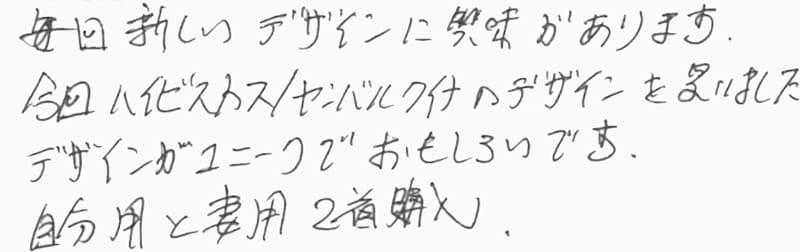 毎回新しいデザインに興味があります.
今回ハイビスカス/ヤンバルクイナのデザインを買いました
デザインがユニークでおもしろいです.
自分用と妻用2着購入.